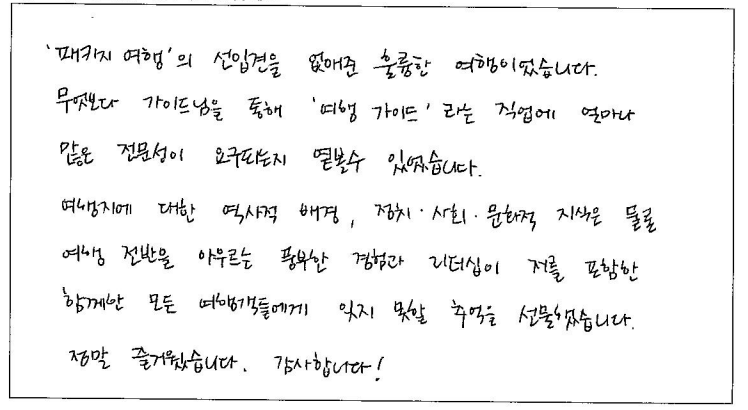 '패키지 여행'의 선입견을 없애준 훌륭한 여행이었습니다.
무엇보다 가이드님을 통해 '여행 가이드' 라는 직업에 얼마나
많은 전문성이 요구되는지 엿볼수 있었습니다.
여행지에 대한 역사적 배경, 정치·사회·문화적 지식은 물론
여행 전반을 아우르는 풍부한 경험과 리더십이 저를 포함한
함께한 모든 여행객들에게 잊지 못할 추억을 선물했습니다.
정말 즐거웠습니다. 감사합니다!